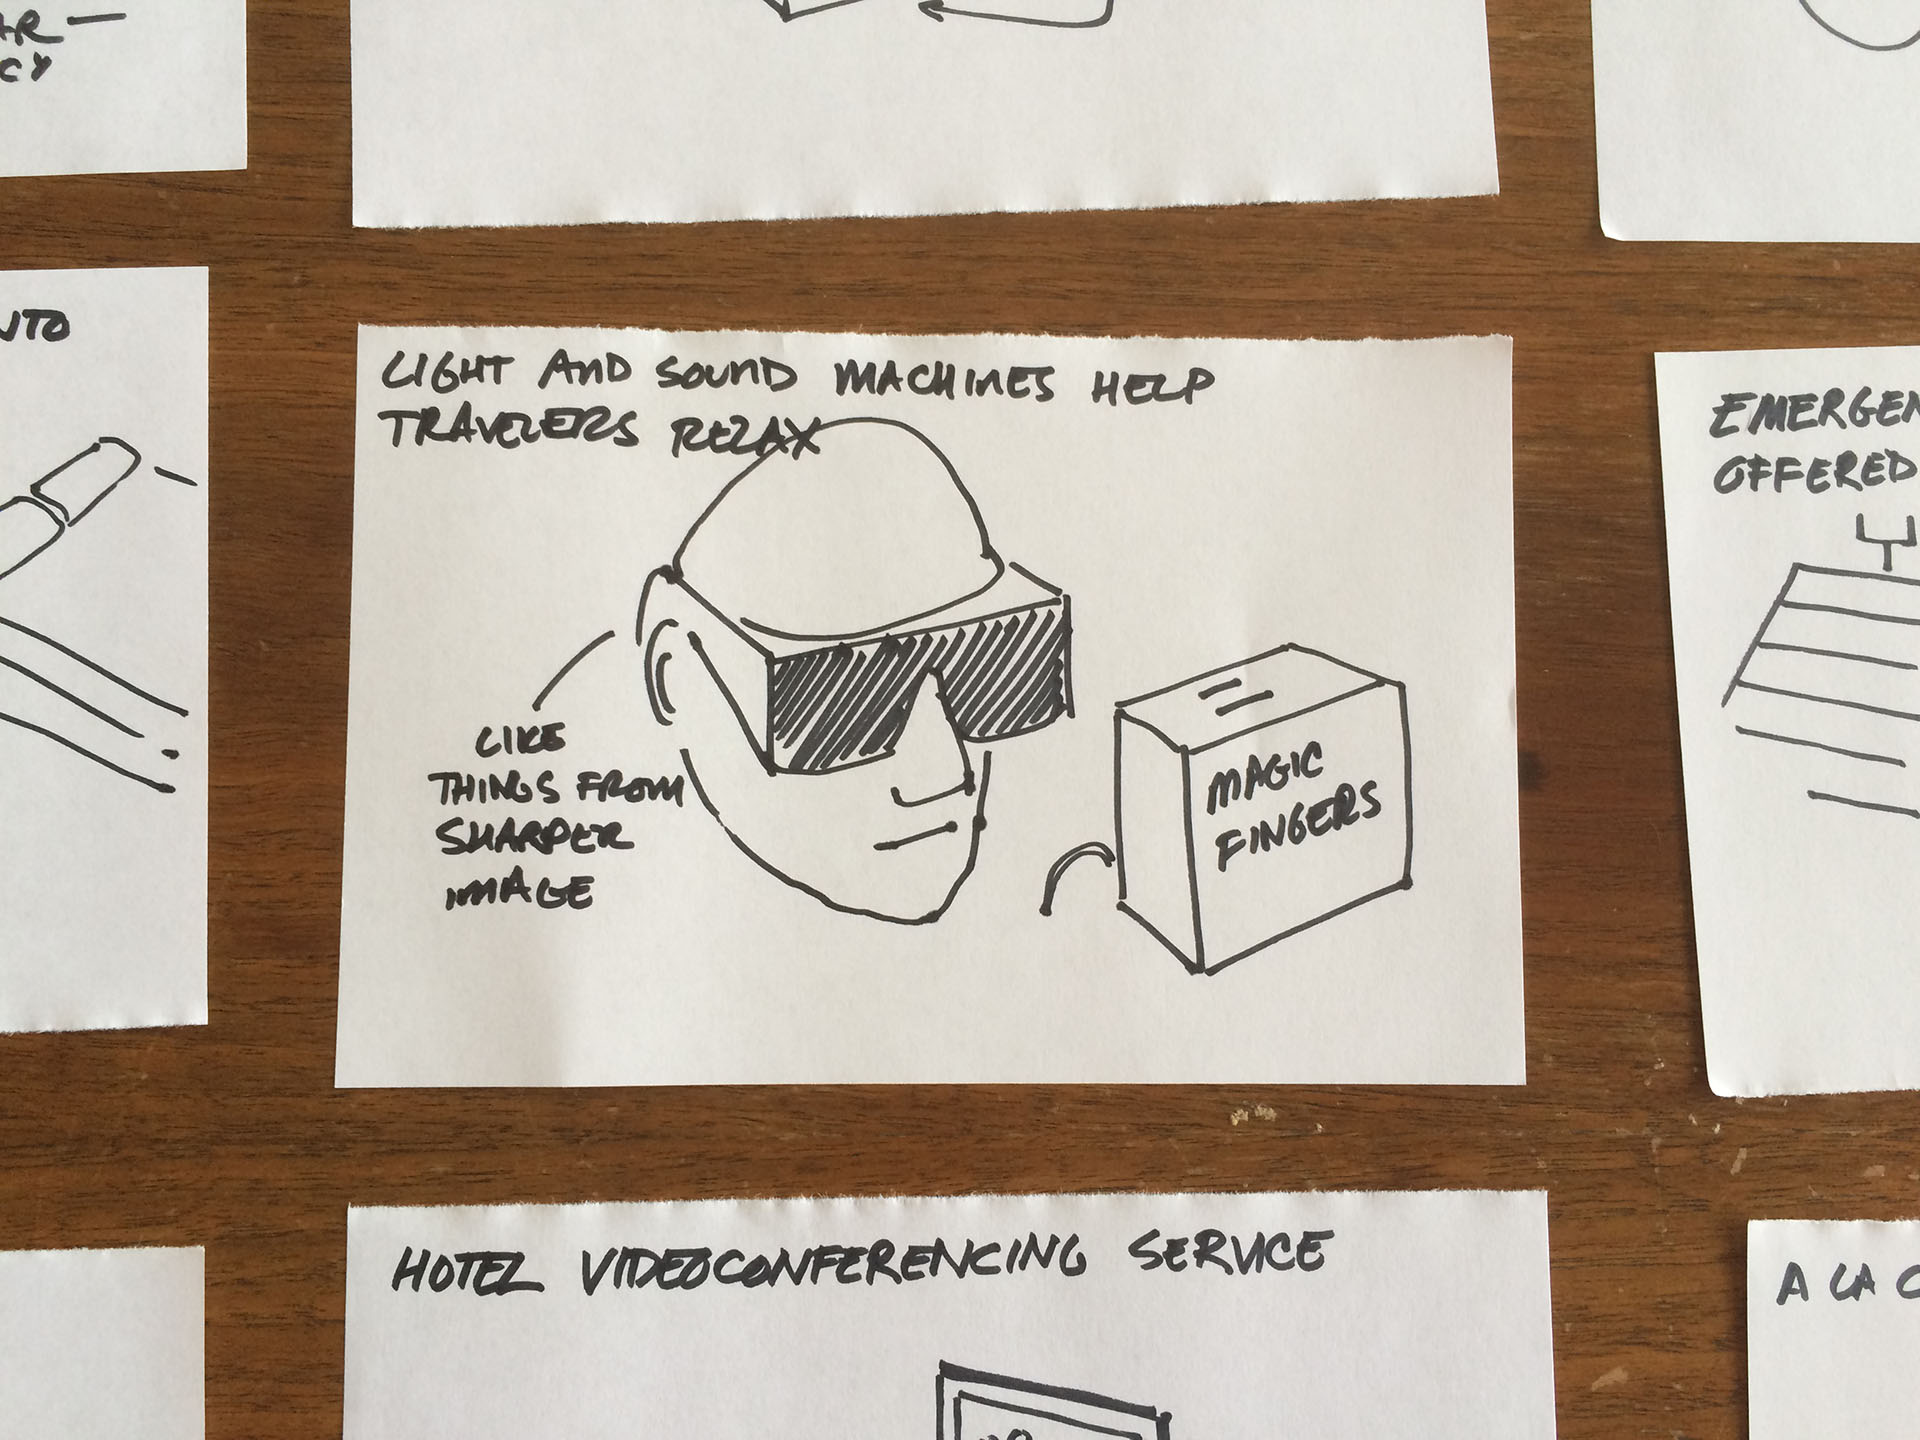 LIGHT AND SOUND MACHINES HELP
TRAVELERS RELAX
LIKE
THINGS FROM
SHARPER
IMAGE
MAGIC
FINGERS
OFFERED
HOTEL VIDEOCONFERENCING SERVICE
A LA